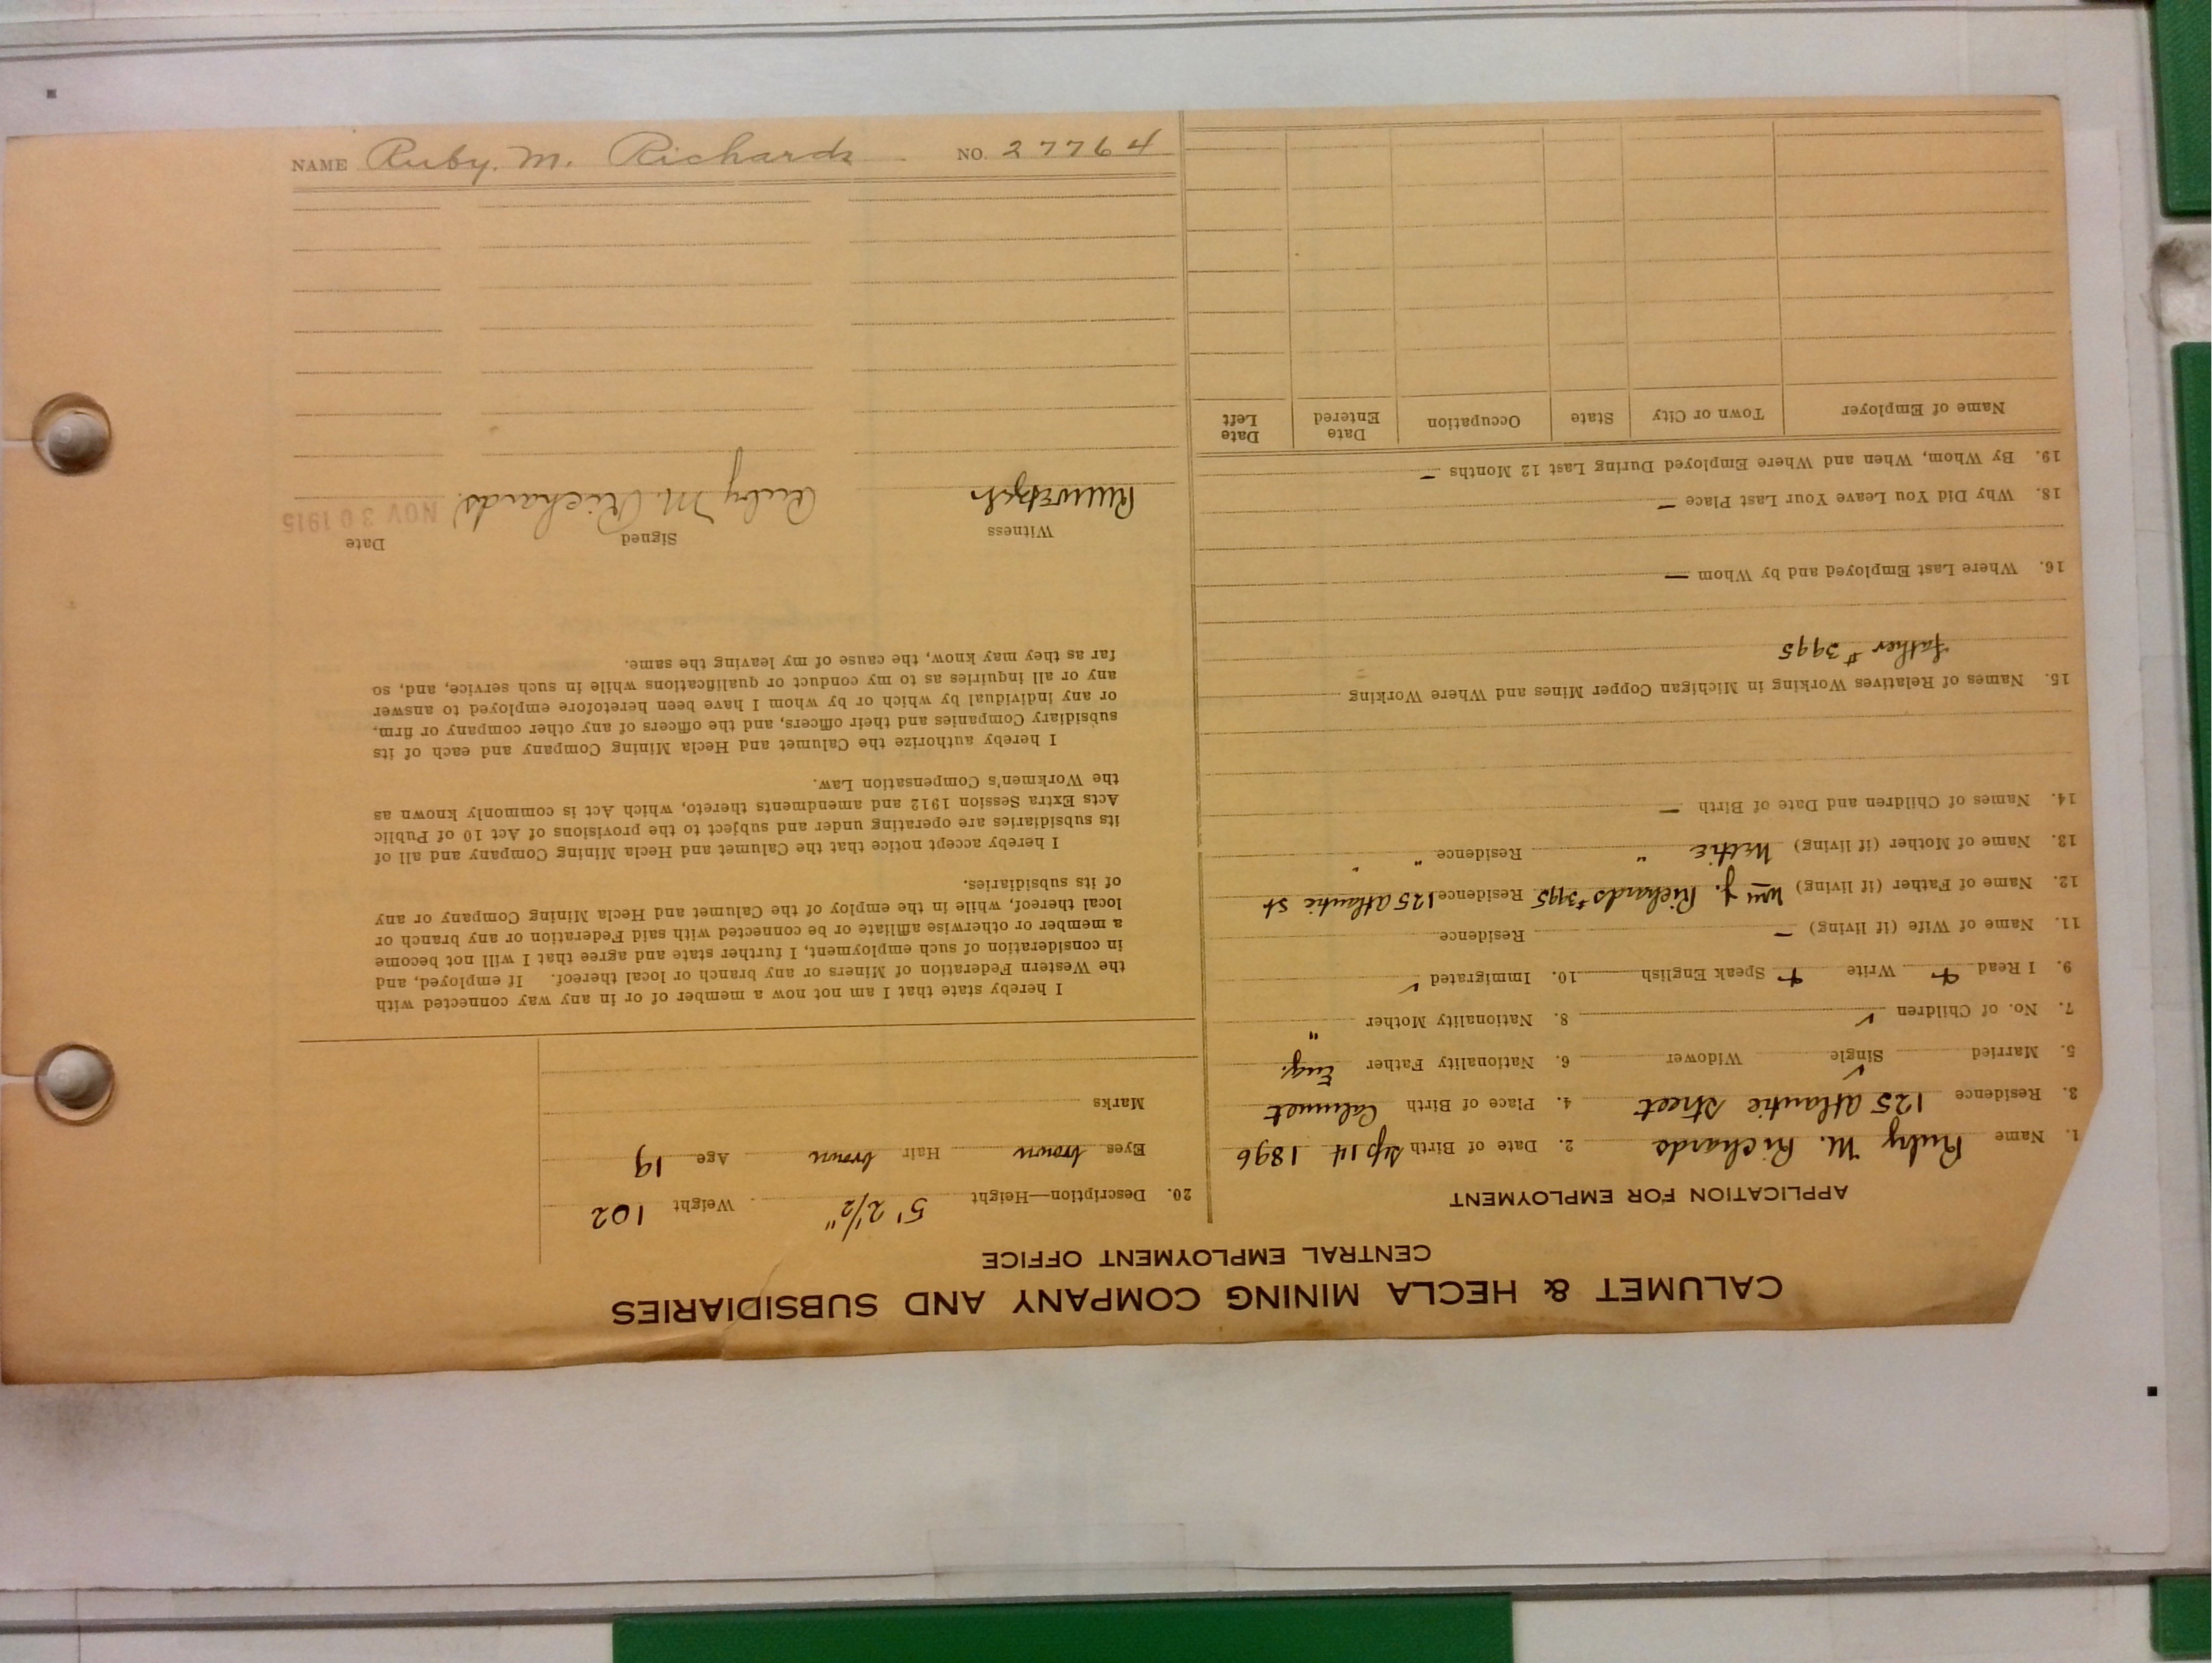 CALUMET & HECLA MINING COMPANY AND SUBSIDIARIES
CENTRAL EMPLOYMENT OFFICE
APPLICATION FOR EMPLOYMENT
1. Name Ruby M. Richards 2. Date of Birth Sep 14 1896
3. Residence 125 Atlantic Street 4. Place of Birth Calumet
5. Married Single ✓ Widower 6. Nationality Father Eng.
7. No. of Children ✓ 8. Nationality Mother "
9. I Read Write Speak English 10. Immigrated ✓
11. Name of Wife (if living) — Residence
12. Name of Father (if living) Wm J. Richards #3995 Residence 125 Atlantic St
13. Name of Mother (if living) " Residence " "
14. Names of Children and Date of Birth —
15. Names of Relatives Working in Michigan Copper Mines and Where Working
Father #3995
16. Where Last Employed and by Whom —
18. Why Did You Leave Your Last Place —
19. By Whom, When and Where Employed During Last 12 Months —
Name of Employer Town or City State Occupation Date Entered Date Left
20. Description—Height 5' 2 1/2" Weight 102
Eyes brown Hair brown Age 19
Marks
I hereby state that I am not now a member of or in any way connected with
the Western Federation of Miners or any branch or local thereof. If employed, and
in consideration of such employment, I further state and agree that I will not become
a member or otherwise affiliate or be connected with said Federation or any branch or
local thereof, while in the employ of the Calumet and Hecla Mining Company or any
of its subsidiaries.
I hereby accept notice that the Calumet and Hecla Mining Company and all of
its subsidiaries are operating under and subject to the provisions of Act 10 of Public
Acts Extra Session 1912 and amendments thereto, which Act is commonly known as
the Workmen's Compensation Law.
I hereby authorize the Calumet and Hecla Mining Company and each of its
subsidiary Companies and their officers, and the officers of any other company or firm,
or any individual by which or by whom I have been heretofore employed to answer
any or all inquiries as to my conduct or qualifications while in such service, and, so
far as they may know, the cause of my leaving the same.
Witness Signed Date
Ruby M. Richards NOV 30 1915
NAME Ruby. M. Richards NO. 27764